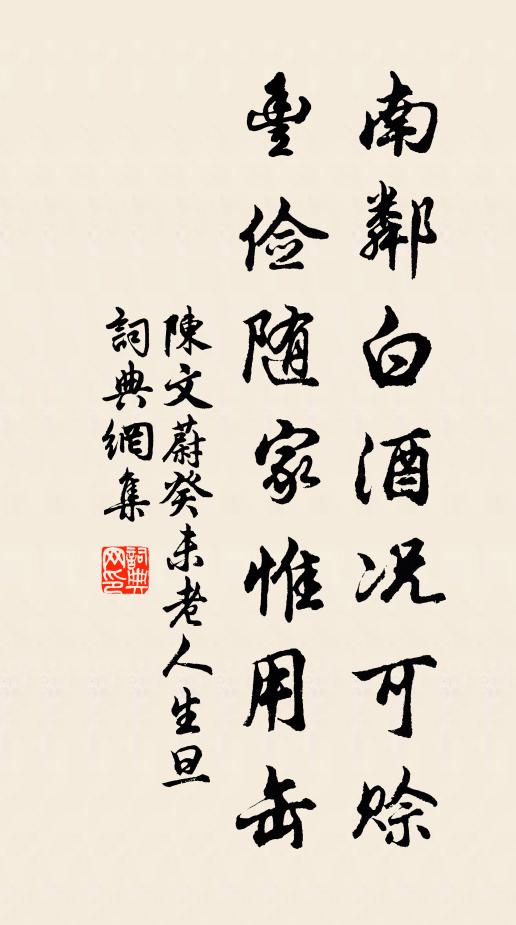 南鄰白酒况可賒
豊儉随家惟用缶
陳文蔚癸未老人生旦
詞典網集
詞典网印